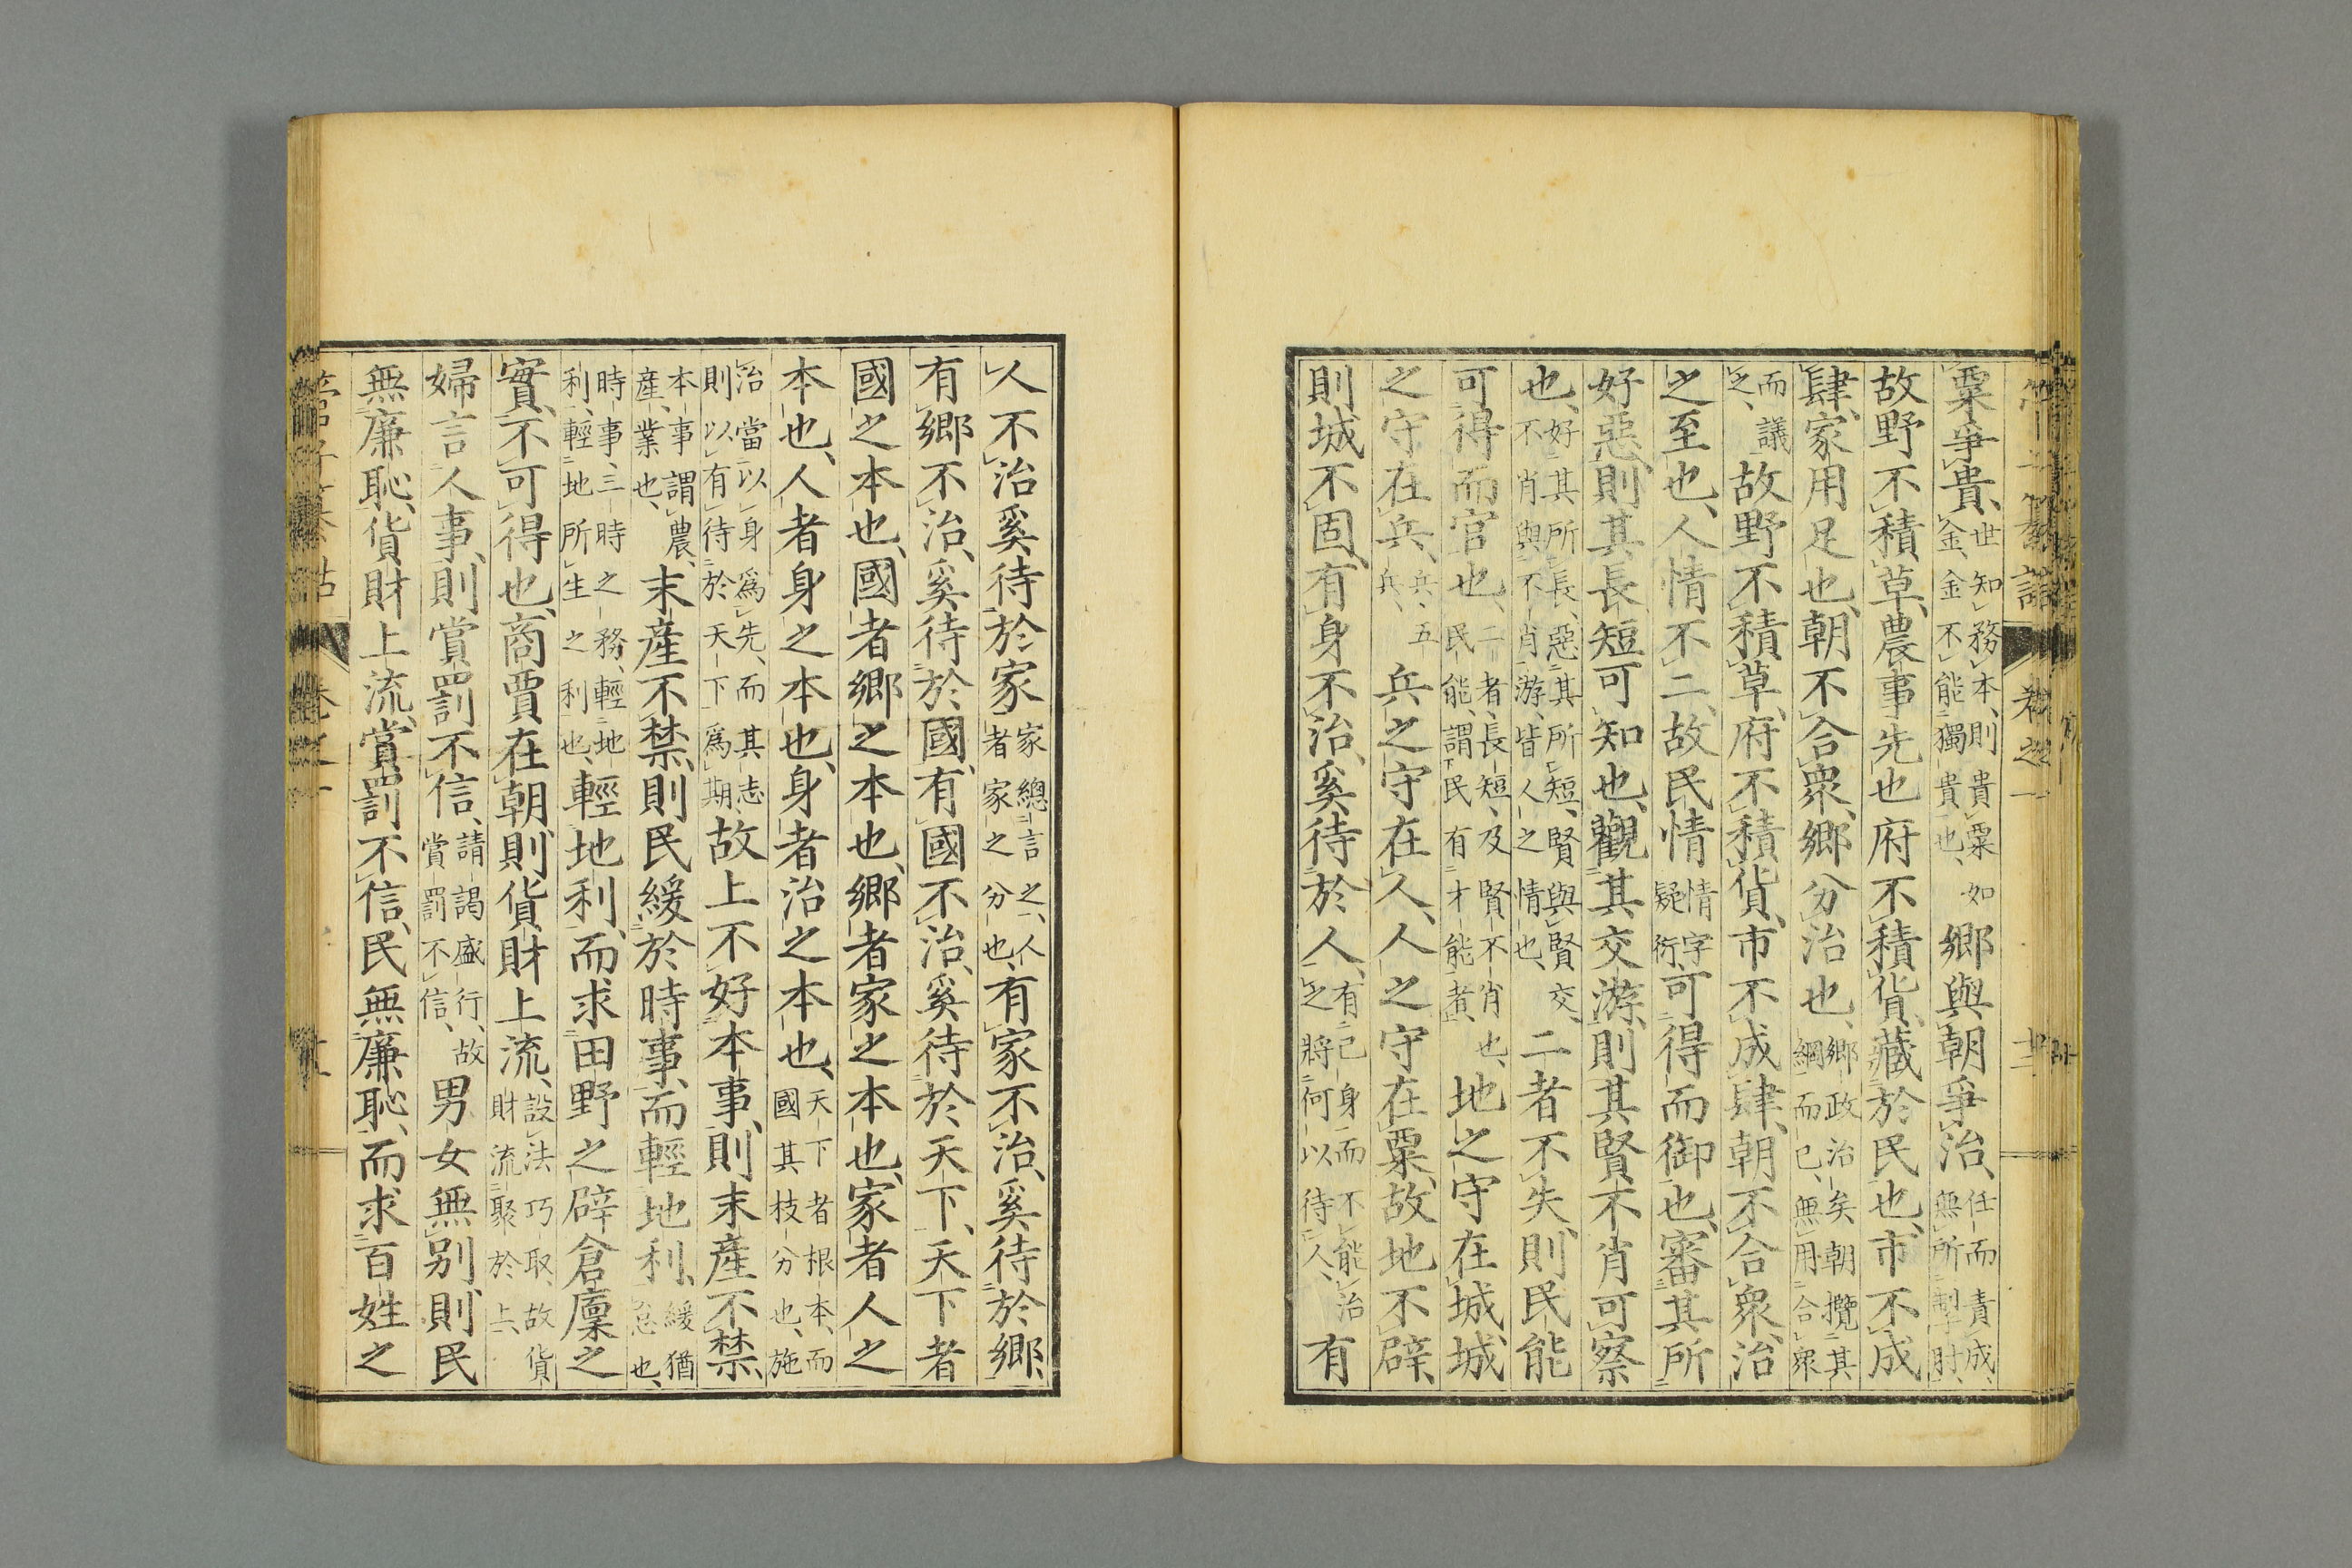 粟爭貴、世知務本、則貴粟如金、金不能獨貴也、鄉與朝爭治、任而責成、無所掣肘、
故野不積草、農事先也、府不積貨、藏於民也、市不成
肆、家用足也、朝不合衆、鄉分治也、鄉政治矣、朝攬其綱而已、無用合衆
而議之、故野不積草、府不積貨、市不成肆、朝不合衆、治
之至也、人情不二、故民情情字疑衍、可得而御也、審其所
好惡、則其長短可知也、觀其交游、則其賢不肖可察
也、好其所長、惡其所短、賢與賢交、不肖與不肖游、皆人之情也、二者不失、則民能
可得而官也、二者、長短、及賢不肖也、民能、謂民有才能者、地之守在城、城
之守在兵、兵、五兵、兵之守在人、人之守在粟、故地不辟、
則城不固、有身不治、奚待於人、有己身而不能治之、將何以待人、有
人不治、奚待於家、家總言之、人者家之分也、有家不治、奚待於鄉、
有鄉不治、奚待於國、有國不治、奚待於天下、天下者
國之本也、國者鄉之本也、鄉者家之本也、家者人之
本也、人者身之本也、身者治之本也、天下者根本、而國其枝分也、施
治當以身爲先、而其志則以有待於天下爲期、故上不好本事、則末產不禁、
本事謂農、產、業也、末產不禁、則民緩於時事、而輕地利、緩猶怠也、
時事、三時之務、輕地利、輕地所生之利也、輕地利、而求田野之辟倉廩之
實、不可得也、商賈在朝、則貨財上流、設法巧取、故貨財流聚於上、
婦言人事、則賞罰不信、請謁盛行、故賞罰不信、男女無別、則民
無廉恥、貨財上流、賞罰不信、民無廉恥、而求百姓之